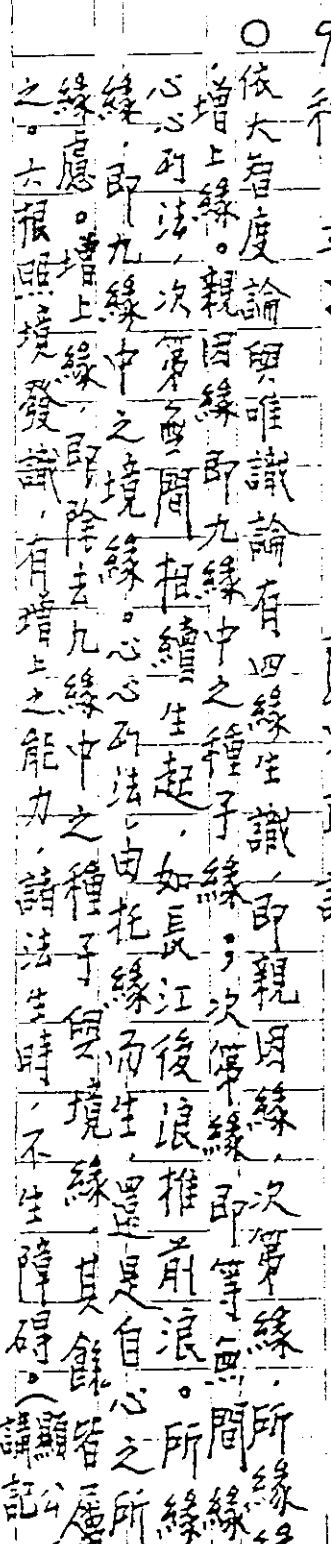 ○依大智度論與唯識論有四緣生識，即親因緣，次第緣，所緣緣
增上緣。親因緣即九緣中之種子緣。，次第緣，即等無間緣
心心所法，次第無間相續生起，如長江後浪推前浪。所緣
緣，即九緣中之境緣。心心所法，由托緣而生，還是自心之所
緣慮。增上緣，即除去九緣中之種子與境緣，其餘皆屬
之。六根照境發識，有增上之能力，諸法生時，不生障礙。（顯公講記